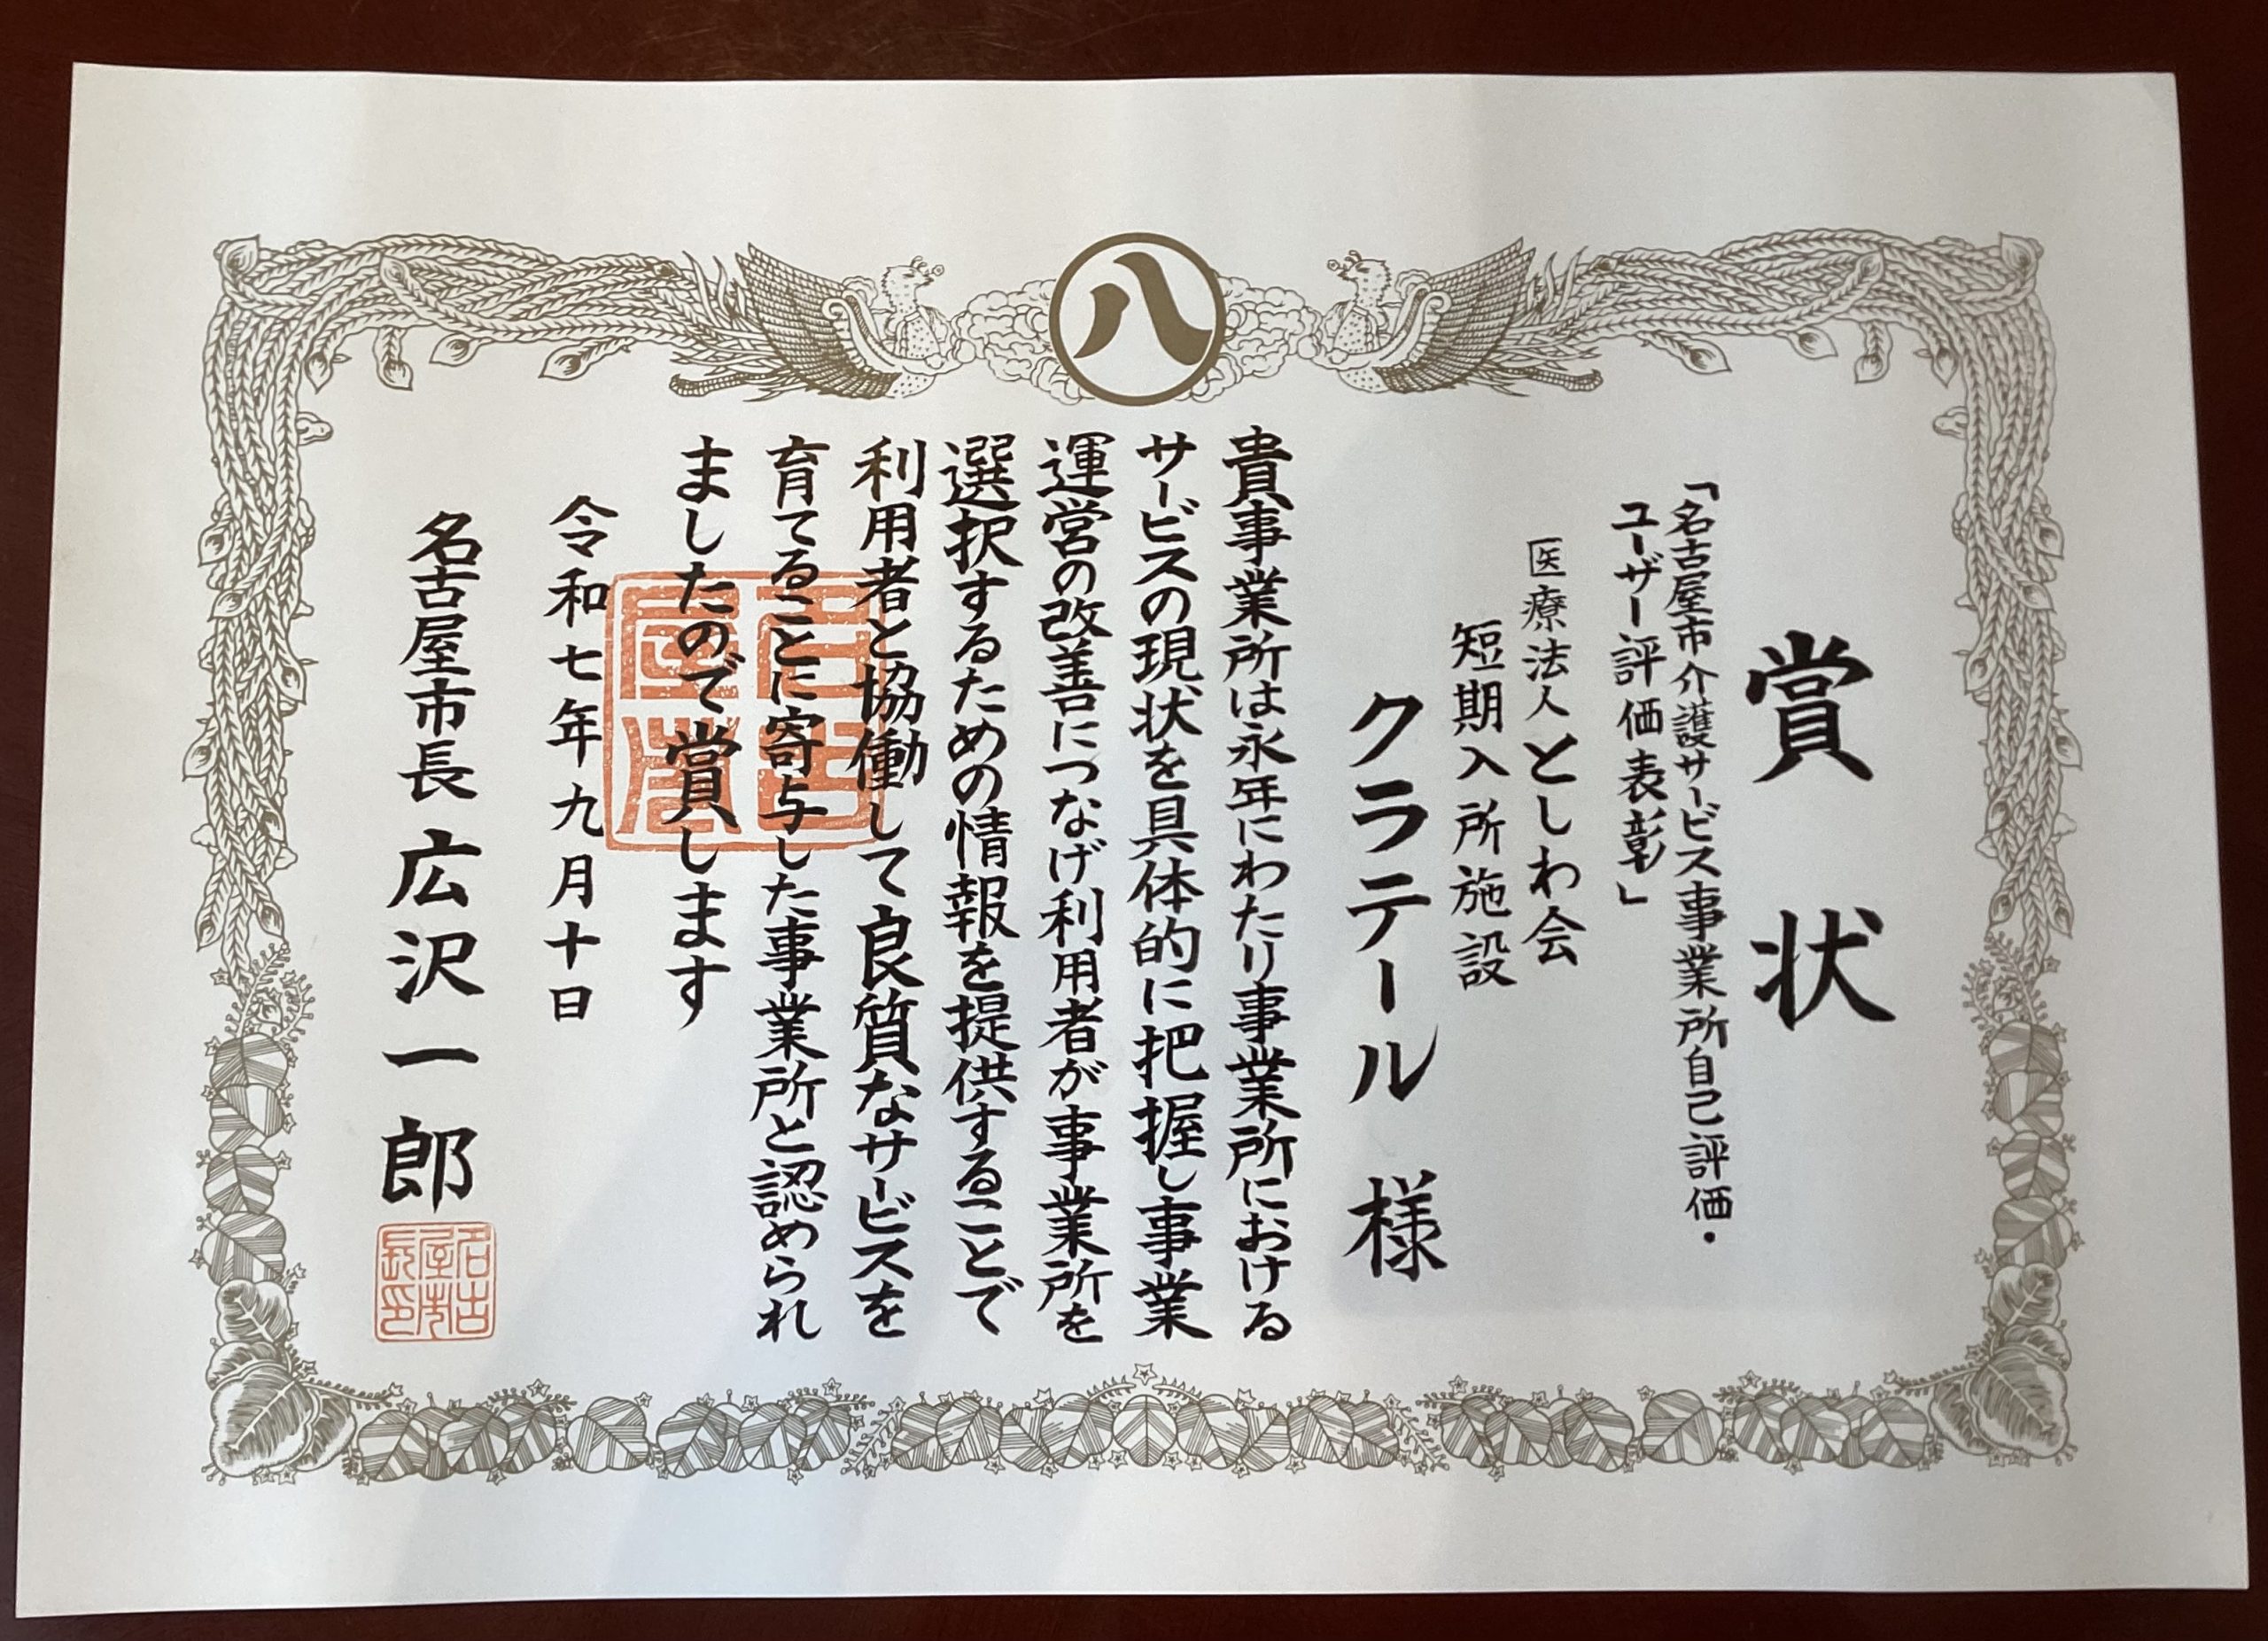 八
賞状
「名古屋市介護サービス事業所自己評価・
ユーザー評価表彰」
医療法人としわ会
短期入所施設
クラテール 様
貴事業所は永年にわたり事業所における
サービスの現状を具体的に把握し事業
運営の改善につなげ利用者が事業所を
選択するための情報を提供することで
利用者と協働して良質なサービスを
育てることに寄与した事業所と認められ
ましたので賞します
令和七年九月十日
名古屋市長 広沢一郎